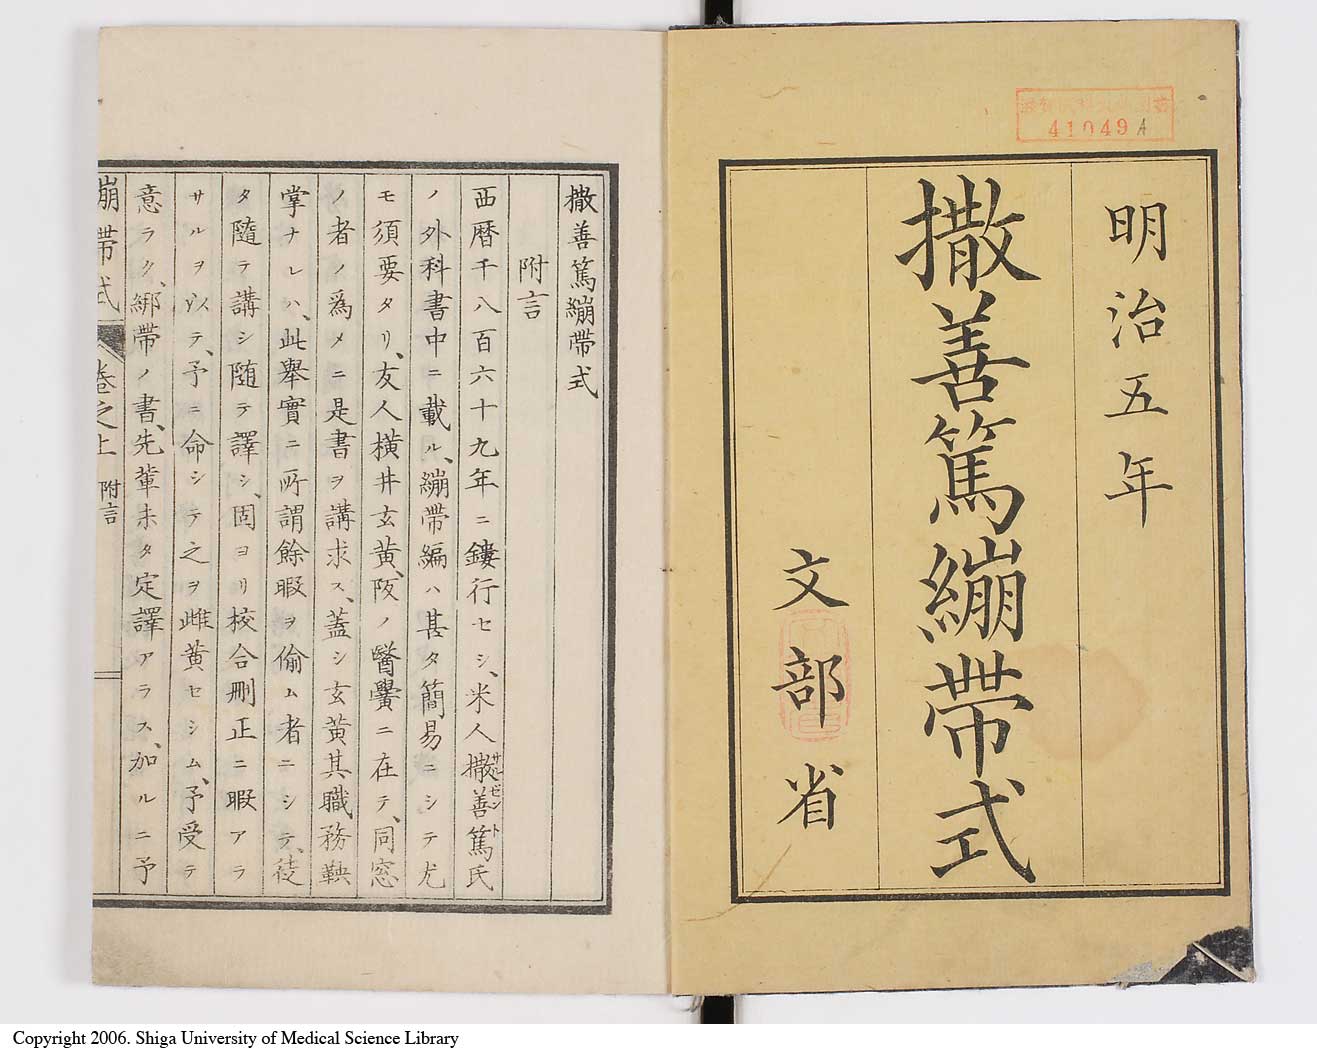 明治五年
撒善篤繃帶式
文部省
41049 A
撒善篤繃帶式
附言
西暦千八百六十九年ニ鏤行セシ、米人撒善篤氏
サルゼント
ノ外科書中ニ載ル、繃帶編ハ甚タ簡易ニシテ尤
モ須要タリ、友人横井玄黄、阪ノ醫黌ニ在テ、同窓
ノ者ノ爲メニ是書ヲ講求ス、蓋シ玄黄其職務鞅
掌ナレハ、此擧實ニ所謂餘暇ヲ偷ム者ニシテ、徒
タ隨テ講シ随テ譯シ、固ヨリ校合刪正ニ暇アラ
サルヲ以テ、予ニ命シテ之ヲ雌黄セシム、予受テ
意ラク、綁帶ノ書、先輩未タ定譯アラス、加ルニ予
繃帶式 卷之上 附言
Copyright 2006. Shiga University of Medical Science Library